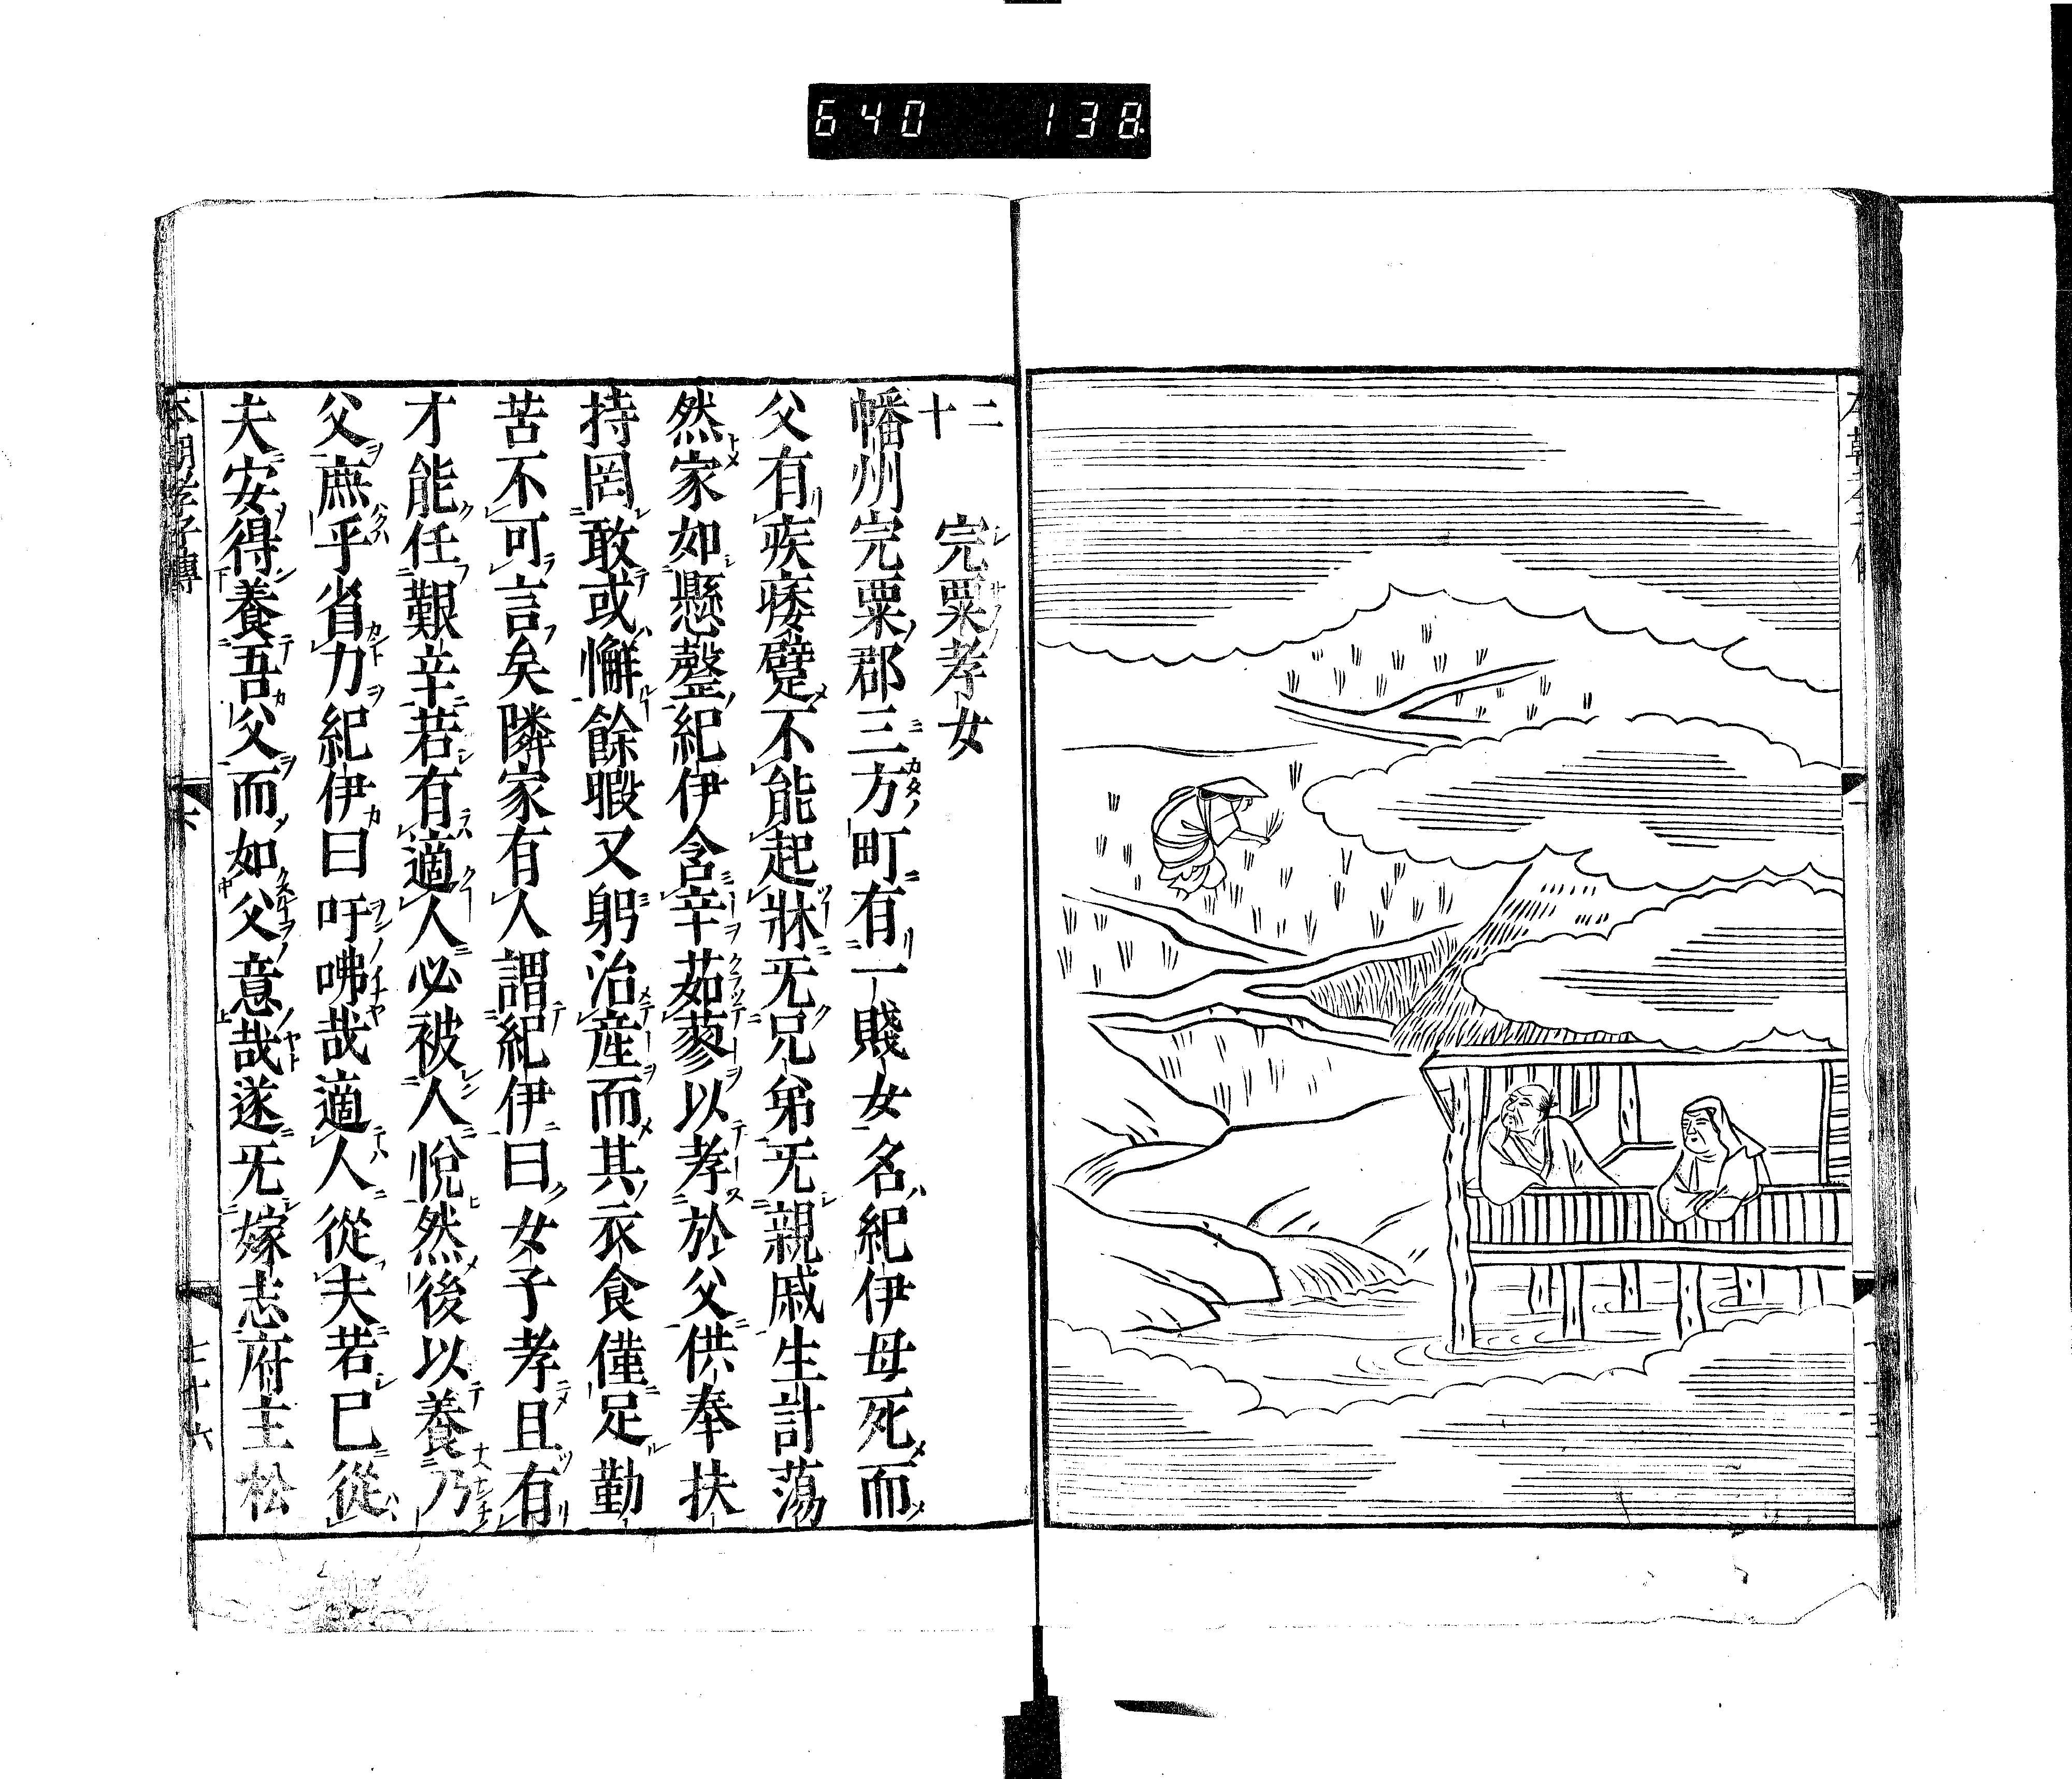 640 138
二十
宍粟孝女
幡州宍粟郡三方町有一賤女名紀伊母死而
父有疾痿躄不能起牀无兄弟无親戚生計蕩
然家如懸罄紀伊含辛茹蓼以孝於父供奉扶
持罔敢或懈餘暇又躬治産而其衣食僅足勤
苦不可言矣隣家有人謂紀伊曰女子孝且有
才能任艱辛若有適人必被人悅然後以養乃
父庶乎省力紀伊曰吁咈哉適人從夫若已從
夫安得養吾父而如父意哉遂无嫁志府主松
本朝孝子傳 下 七十六